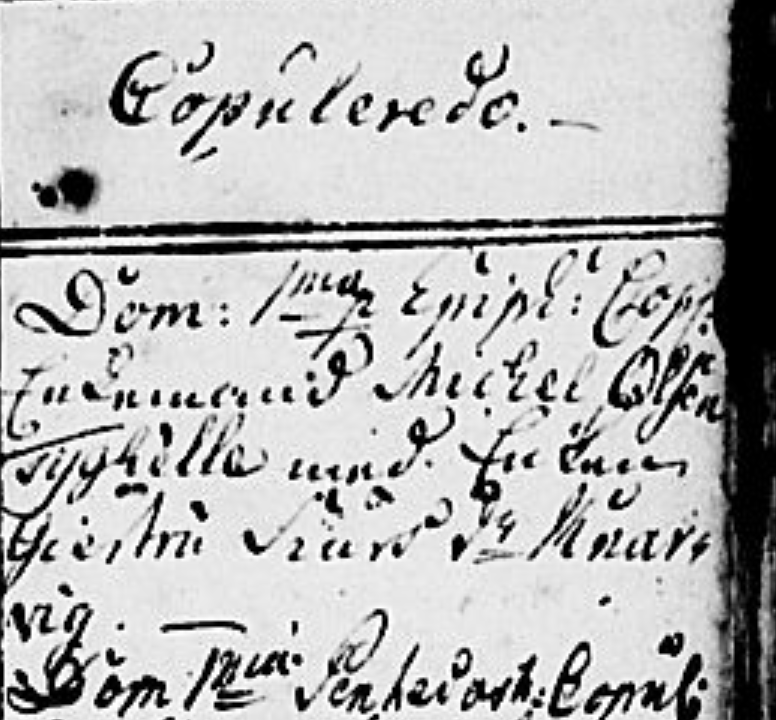 Copulerede.
Dom: 1ma p Epiph: Cop:
Enkemand Mickel Olsen
Myghille med Enken
Giertrud Siurs Dr Knars
vig.
Dom 1ma Pentecost: Copul: